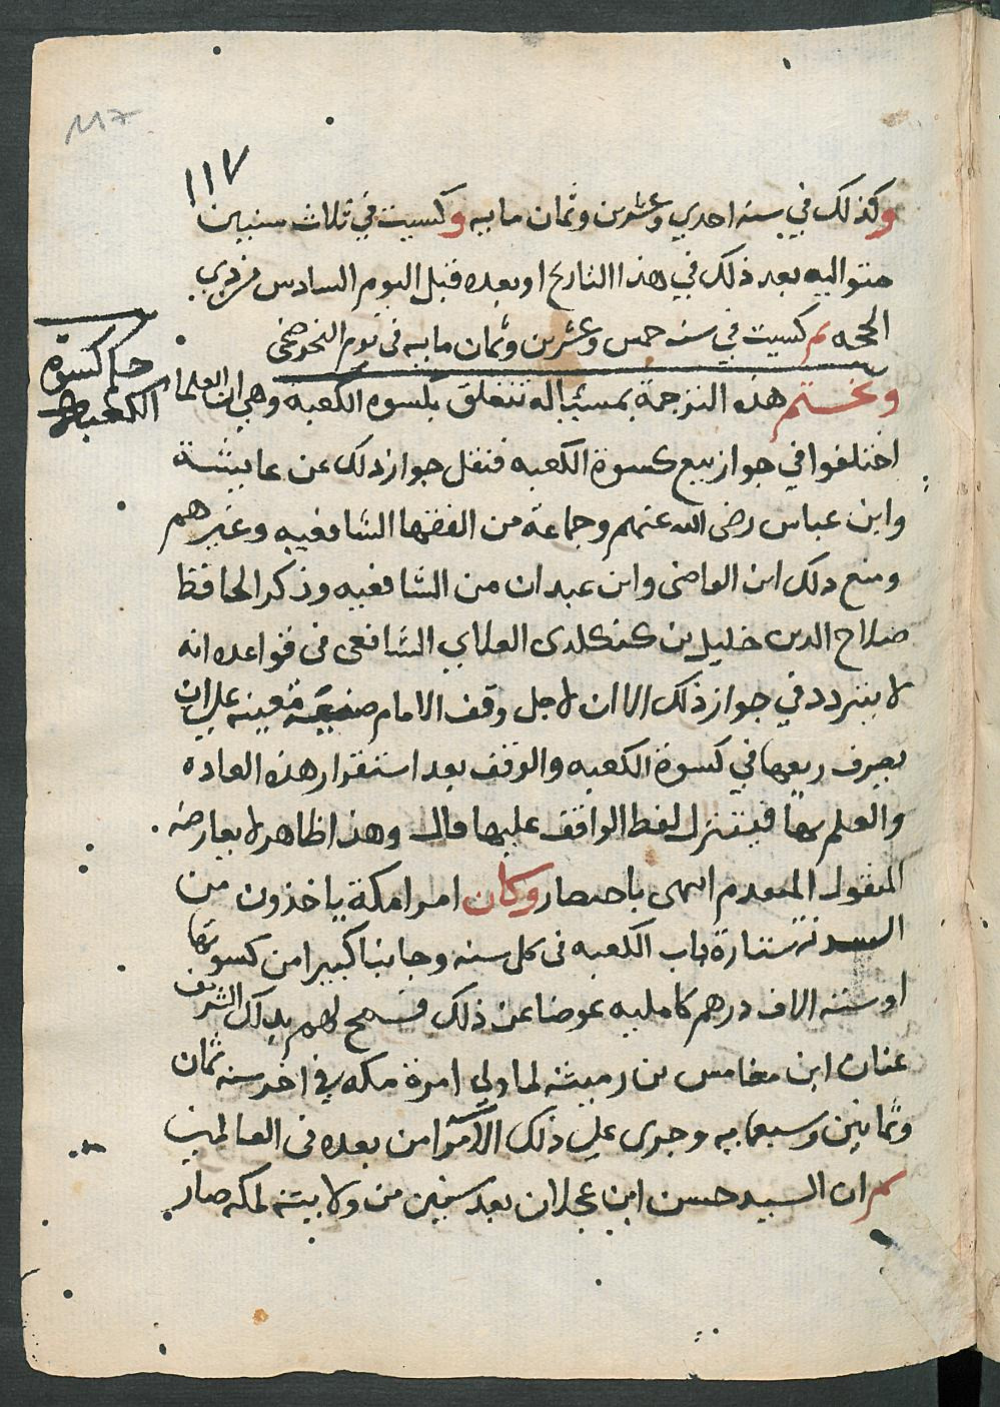 117
١١٧
وكذلك في سنه احدي وعشرين وثمان مايه وكسيت في ثلاث سنين
متواليه بعد ذلك في هذا التاريخ او بعده قبل اليوم السادس من ذي
الحجه ثم كسيت في سنه خمس وعشرين وثمان مايه في يوم النحر ضحى
كسوة
الكعبة
ونختم هذه الترجمة بمسئاله تتعلق بكسوه الكعبه وهي ان العلما
اختلفوا في جواز بيع كسوة الكعبه فنقل جواز ذلك عن عايشة
وابن عباس رضى الله عنهم وجماعة من الفقها الشافعيه وغيرهم
ومنع ذلك ابن القاضى وابن عبدان من الشافعيه وذكر الحافظ
صلاح الدين خليل بن كنكلدى العلاي الشافعى فى قواعده انه
لا يتردد في جواز ذلك الان لاجل وقف الامام ضيعة معينه على ان
يصرف ريعها في كسوة الكعبه والوقف بعد استقرار هذه العاده
والعلم بها فينتزل لفظ الواقف عليها قال وهذا ظاهر لا يعارضه
المنقول المتقدم انتهى باختصار وكان امرا مكة ياخذون من
السدنة ستارة باب الكعبه فى كل سنه وجانبا كبيرا من كسوتها
او ستة الاف درهم كامليه عوضا عن ذلك فسمح لهم بذلك الشريف
عنان ابن مغامس بن رميثه لما ولي امرة مكه في اخر سنه ثمان
وثمانين وسبعمايه وجرى على ذلك الامرا من بعده فى الغالب
ثم ان السيد حسن ابن عجلان بعد سنين من ولايته لمكه صار